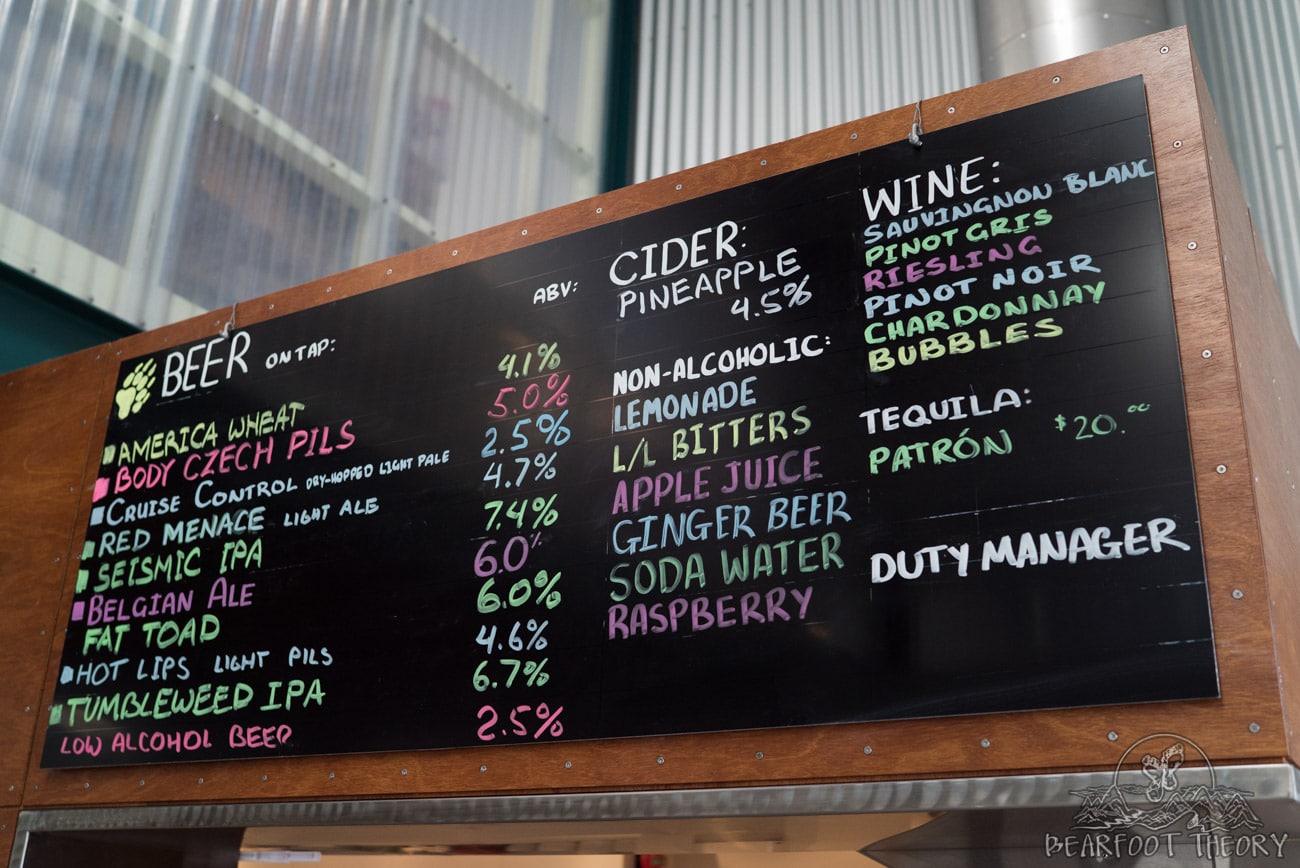 BEER ON TAP: ABV:
AMERICA WHEAT 4.1%
BODY CZECH PILS 5.0%
CRUISE CONTROL DRY-HOPPED LIGHT PALE 2.5%
RED MENACE LIGHT ALE 4.7%
SEISMIC IPA 7.4%
BELGIAN ALE 6.0%
FAT TOAD 6.0%
HOT LIPS LIGHT PILS 4.6%
TUMBLEWEED IPA 6.7%
LOW ALCOHOL BEER 2.5%
CIDER:
PINEAPPLE
4.5%
NON-ALCOHOLIC:
LEMONADE
L/L BITTERS
APPLE JUICE
GINGER BEER
SODA WATER
RASPBERRY
WINE:
SAUVINGNON BLANC
PINOT GRIS
RIESLING
PINOT NOIR
CHARDONNAY
BUBBLES
TEQUILA:
PATRÓN $20.00
DUTY MANAGER
BEARFOOT THEORY